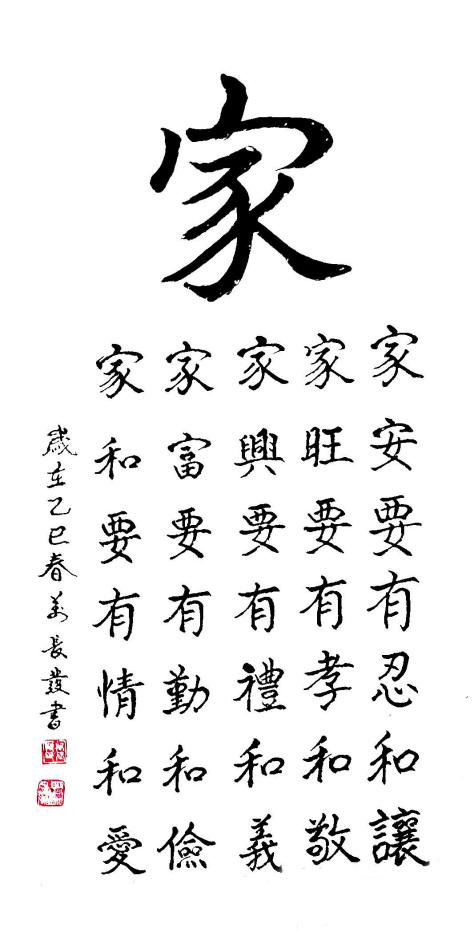 家
家安要有忍和讓
家旺要有孝和敬
家興要有禮和義
家富要有勤和儉
家和要有情和愛
歲在乙巳春萬長發書